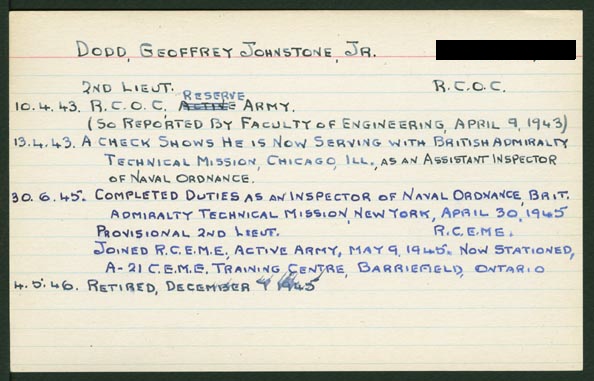 DODD, GEOFFREY JOHNSTONE, JR.
2ND LIEUT. R.C.O.C.
RESERVE
10.4.43. R.C.O.C. ACTIVE ARMY.
(SO REPORTED BY FACULTY OF ENGINEERING, APRIL 9, 1943)
13.4.43. A CHECK SHOWS HE IS NOW SERVING WITH BRITISH ADMIRALTY
TECHNICAL MISSION, CHICAGO, ILL., AS AN ASSISTANT INSPECTOR
OF NAVAL ORDNANCE.
30.6.45. COMPLETED DUTIES AS AN INSPECTOR OF NAVAL ORDNANCE, BRIT.
ADMIRALTY TECHNICAL MISSION, NEW YORK, APRIL 30, 1945
PROVISIONAL 2ND LIEUT. R.C.E.M.E.
JOINED R.C.E.M.E., ACTIVE ARMY, MAY 9, 1945. NOW STATIONED,
A-21 C.E.M.E. TRAINING CENTRE, BARRIEFIELD, ONTARIO
4.5.46. RETIRED, DECEMBER 1945